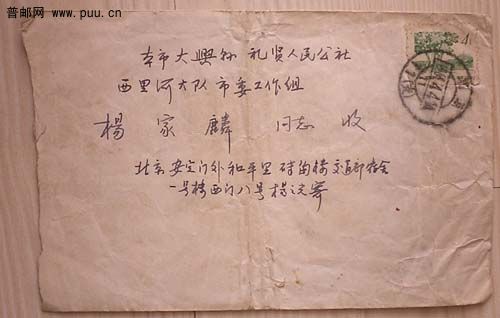 普邮网
www.puu.cn
本市大興县礼贤人民公社
西里河大队市委工作组
楊家麟同志收
北京安定门外和平里 交通部宿舍
一号楼西门八号楊 寄